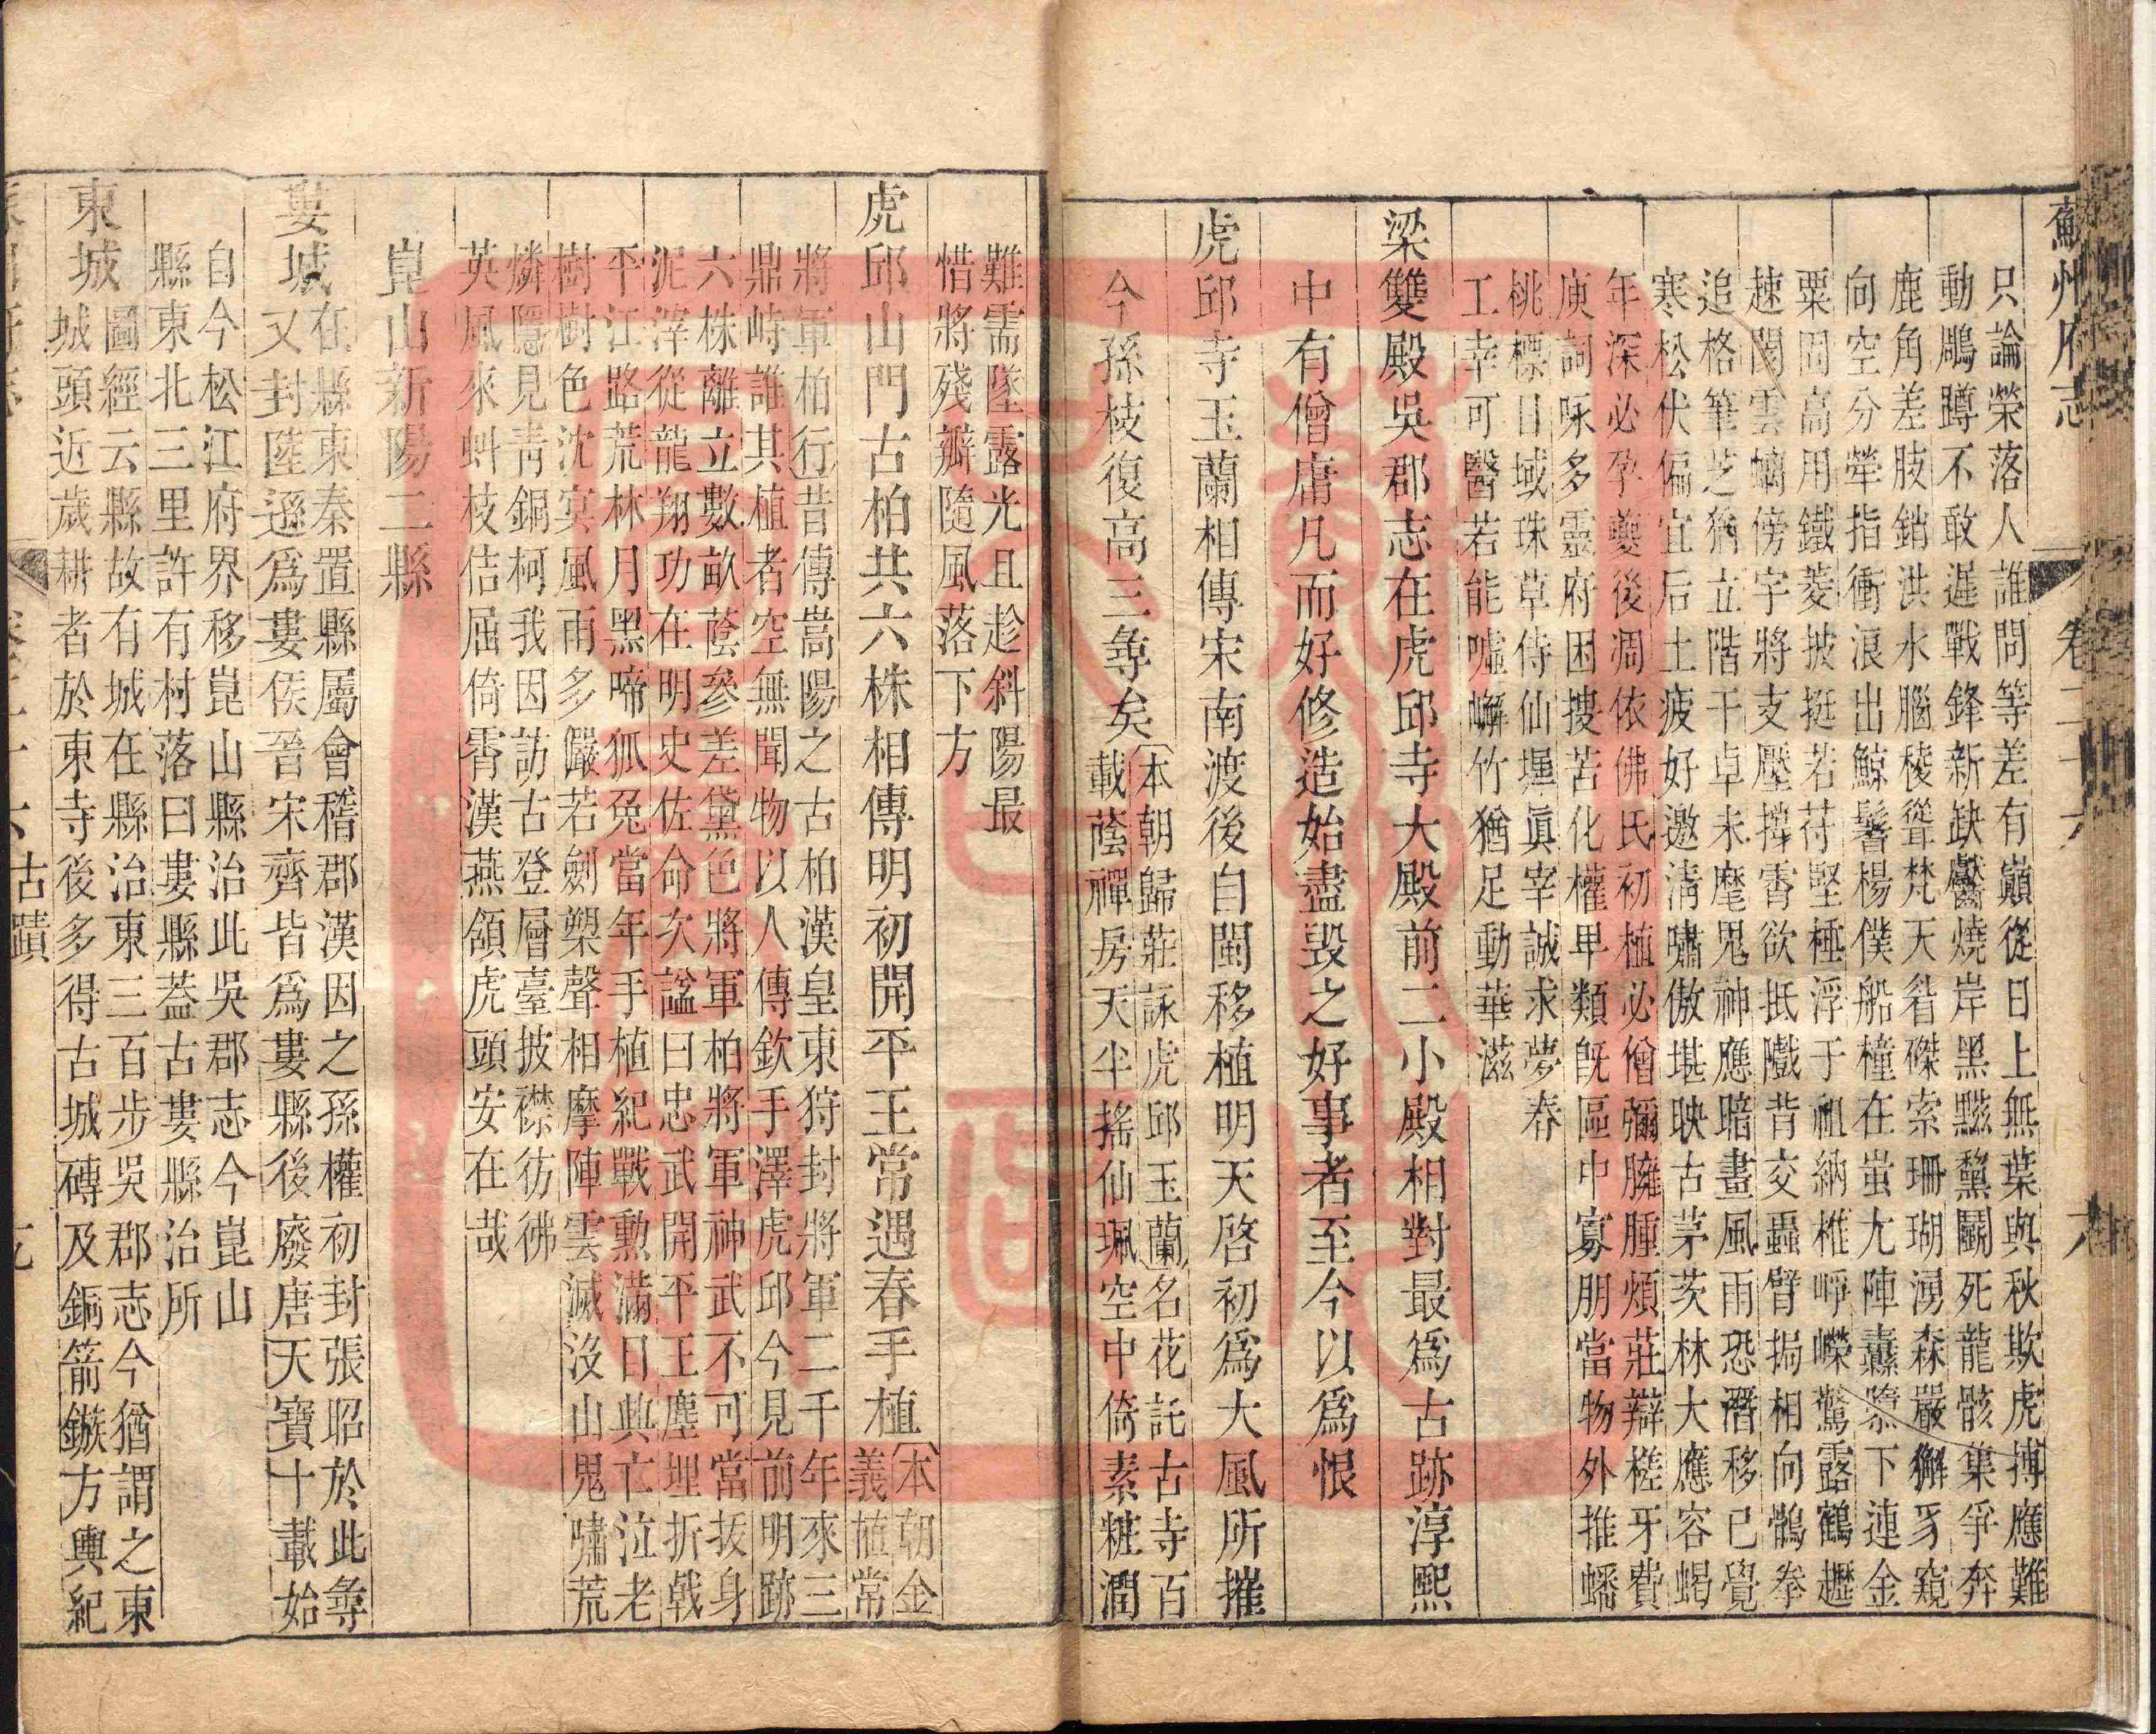 蘇州府志
卷二十六
只論榮落人誰問等差有巓從日上無葉與秋欺虎搏應難
動鵰蹲不敢遲戰鋒新缺齾燒岸黑黳黧鬭死龍骸集爭奔
鹿角差肢銷洪水腦稜聳梵天眥磔索珊瑚湧森嚴獬豸窺
向空分犖指衝浪出鯨鬐楊僕船橦在蚩尤陣纛隳下連金
粟固高用鐵菱披挺若苻堅棰浮于祖納椎崢嶸驚露鶴趯
䟫閡雲螭傍宇將支壓撐霄欲抵巇背交蟲臂挶相向鶻拳
追格筆芝猶立階干卓未麾鬼神應暗畫風雨恐潛移已覺
寒松伏偏宜后土疲好邀淸嘯傲堪映古茅茨林大應容蝎
年深必孕夔後凋依佛氏初植必僧彌臃腫煩莊辯槎牙費
庾詞咏多靈府困搜苦化權卑類旣區中寡朋當物外推蟠
桃標日域珠草侍仙墀眞宰誠求夢春
工幸可醫若能噓嶰竹猶足動華滋
梁雙殿吳郡志在虎邱寺大殿前二小殿相對最爲古跡淳熙
中有僧庸凡而好修造始盡毁之好事者至今以爲恨
虎邱寺玉蘭相傳宋南渡後自閩移植明天啓初爲大風所摧
今孫枝復高三尋矣
〔本朝歸莊詠虎邱玉蘭〕名花託古寺百
載蔭禪房天半搖仙珮空中倚素粧潤
難需墜露光且趁斜陽最
惜將殘瓣隨風落下方
虎邱山門古柏共六株相傳明初開平王常遇春手植
〔本朝金
義植常
將軍柏行〕昔傳嵩陽之古柏漢皇東狩封將軍二千年來三
鼎峙誰其植者空無聞物以人傳欽手澤虎邱今見前明跡
六株離立數畝蔭參差黛色將軍柏將軍神武不可當拔身
泥滓從龍翔功在明史佐命次諡曰忠武開平王塵埋折戟
平江路荒林月黑啼狐兔當年手植紀戰勳滿目典亡泣老
樹樹色沈冥風雨多儼若劍槊聲相摩陣雲滅沒山鬼嘯荒
燐隱見靑銅柯我因訪古登層臺披襟彷彿
英風來蚪枝佶屈倚霄漢燕頷虎頭安在哉
崑山新陽二縣
婁城
在縣東秦置縣屬會稽郡漢因之孫權初封張昭於此尋
又封陸遜爲婁侯晉宋齊皆爲婁縣後廢唐天寶十載始
自今松江府界移崑山縣治此吳郡志今崑山
縣東北三里許有村落曰婁縣葢古婁縣治所
東城
圖經云縣故有城在縣治東三百步吳郡志今猶謂之東
城城頭近歲耕者於東寺後多得古城磚及銅箭鏃方輿紀
古蹟